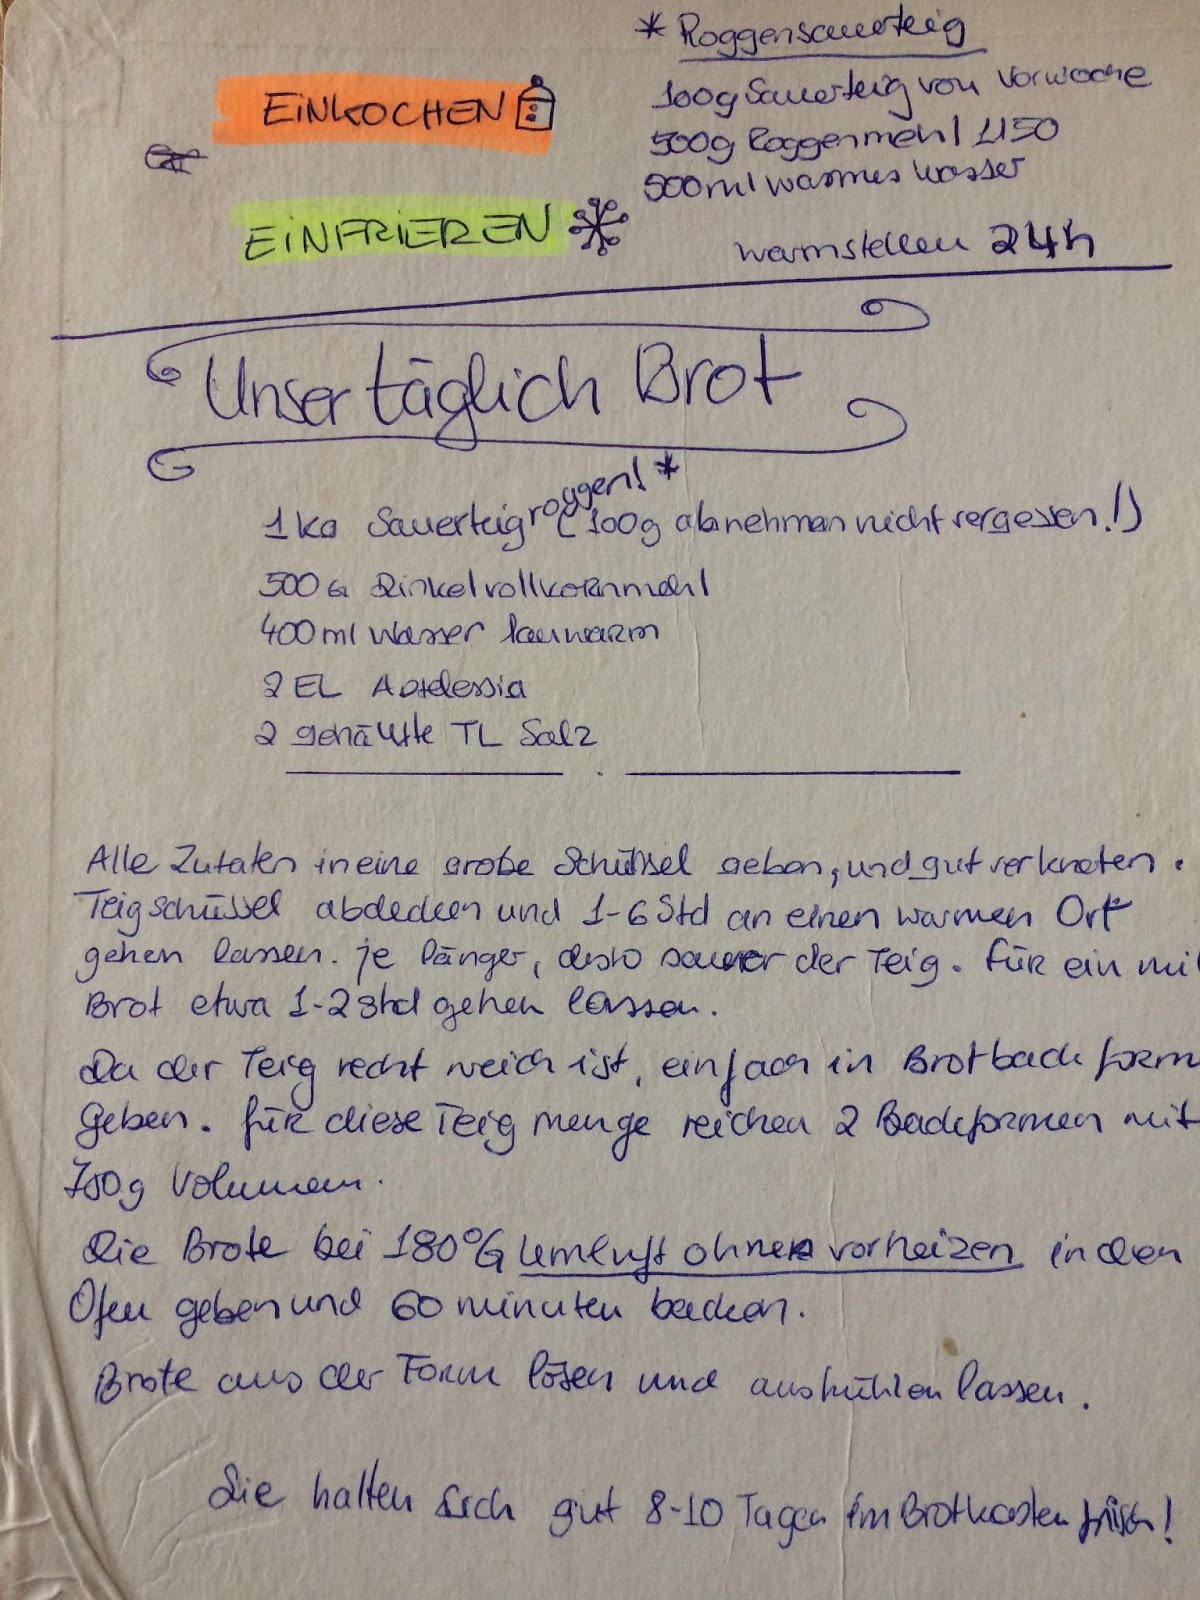 * Roggensauerteig
100g Sauerteig von Vorwoche
500g Roggenmehl 1150
500ml warmes Wasser
warmstellen 24h
EINKOCHEN
EINFRIEREN
Unser täglich Brot
1 KG Sauerteig roggen! * (100g abnehmen nicht vergessen!)
500 G Dinkelvollkornmehl
400 ml Wasser lauwarm
2 EL
2 gehäufte TL Salz
Alle Zutaten in eine große Schüssel geben, und gut verkneten.
Teigschüssel abdecken und 1-6 Std an einen warmen Ort
gehen lassen. je länger, desto saurer der Teig. Für ein mil
Brot etwa 1-2 Std gehen lassen.
Da der Teig recht weich ist, einfach in Brotback form
geben. für diese Teig menge reichen 2 Backformen mit
750g Volumen.
Die Brote bei 180°C Umluft ohne vorheizen in den
Ofen geben und 60 minuten backen.
Brote aus der Form lösen und auskühlen lassen.
Sie halten sich gut 8-10 Tagen im Brotkasten frisch!